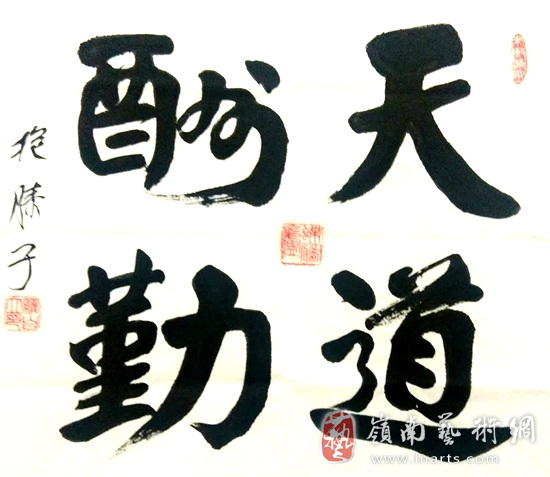 天道
酬勤
抱膝子
嶺南藝術網
www.lnarts.com